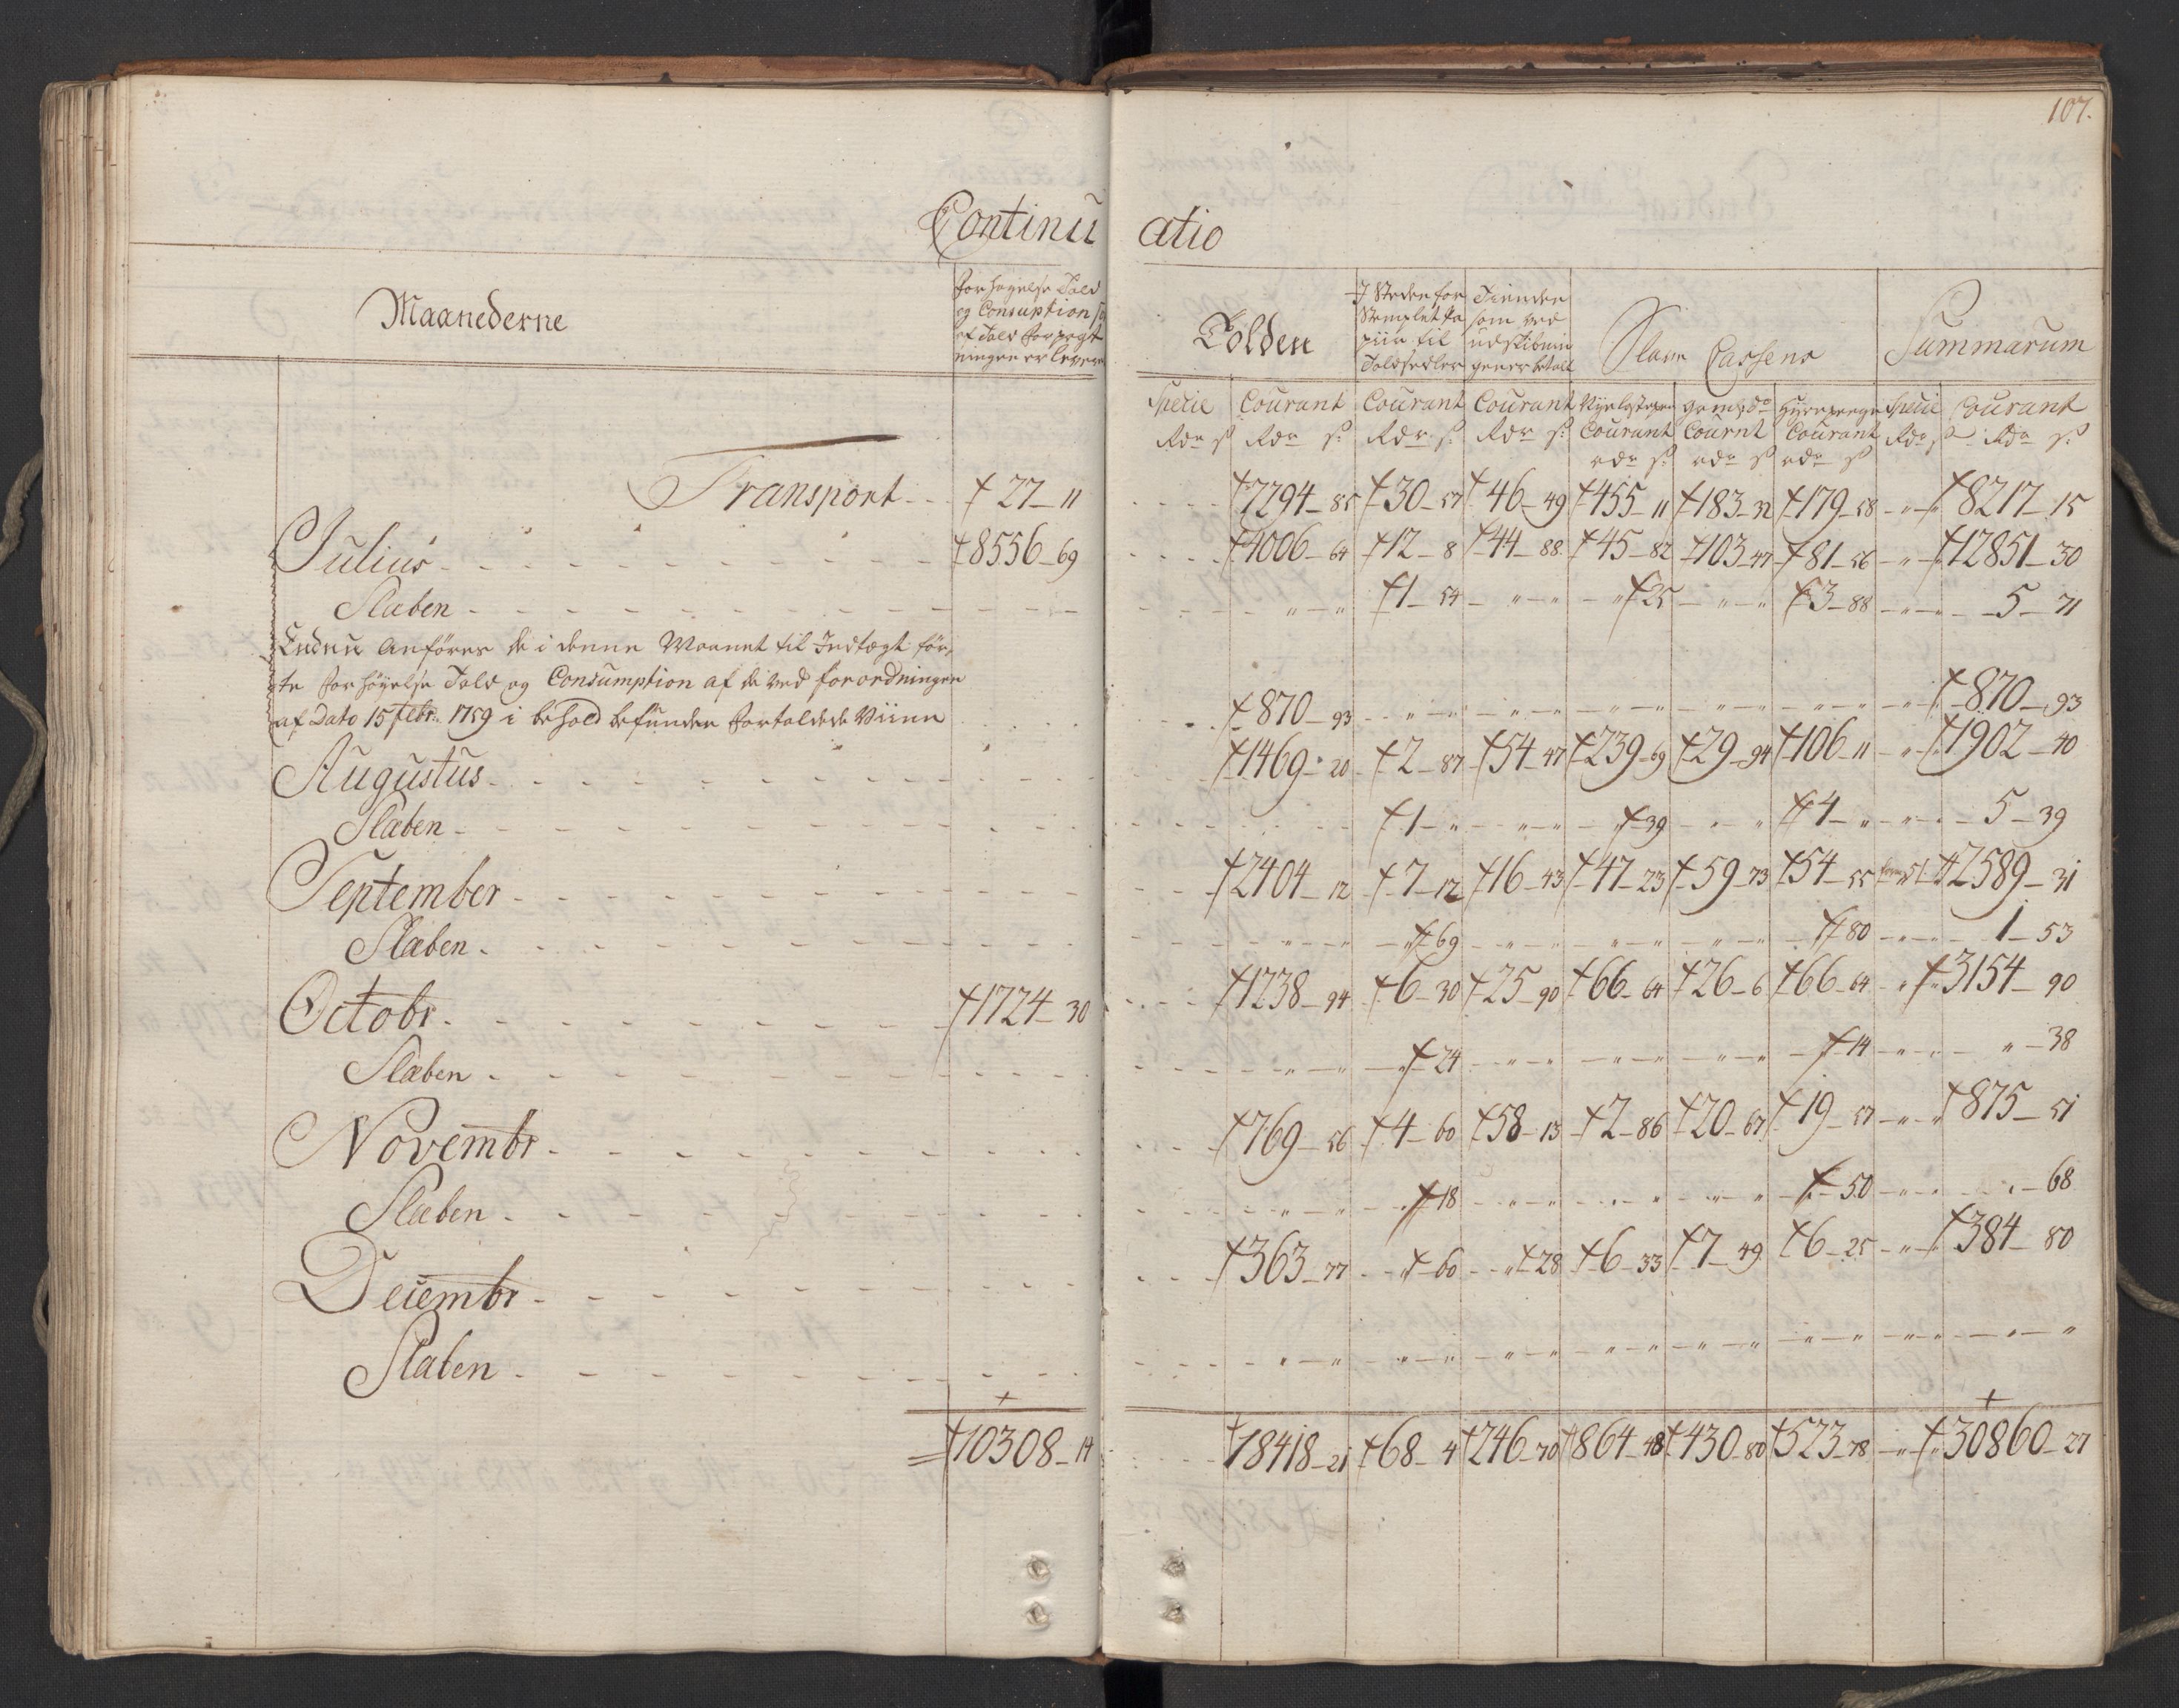 107.
Continu atio
Maanederne
Forhøyelse Told
og Consuption
af Told Forpagt
ningen er lever
Tolden
I Steden for
Stemplet Pa
piir til
Toldsedler
Tienden
som ved
udskibnin
gen er betalt
Slave Cassens
Summarum
Specie Courant Courant Courant Courant Cournt Courant Specie Courant
Rdr s Rdr s: Rdr s: Rdr s: rdr s: rdr s rdr s Rdr s Rdr s:
Transport 27 11 7294 85 30 57 46 49 455 11 183 32 179 58 " 8217 15
Julius 8556 69 4006 64 12 8 44 88 45 82 103 47 81 56 " 12851 30
Slaben " " 1 54 " " " 25 " " 3 88 " " 5 71
Endnu anföres de i denne Maanet til Indtægt för,
te Forhöyelse Told og Consumption af de ved forordningen
af Dato 15 Febr: 1759 i behold befunden fortoldede Viine 870 93 " " " " " " " " " " " " 870 93
Augustus 1469 20 2 87 54 47 239 69 29 94 106 11 " 1902 40
Slaben 1 " " " " 39 " " 4 " " " 5 39
September 2404 12 7 12 16 43 47 23 59 73 54 55 2589 31
Slaben " " " 69 " " " " " " " 80 " " 1 53
Octobr 1724 30 1238 94 6 30 25 90 66 64 26 6 66 64 " 3154 90
Slaben " " " 24 " " " " " " 14 " " " 38
Novembr 769 56 4 60 58 13 2 86 20 67 19 57 " " 875 51
Slaben " " " 18 " " " " " " " 50 " " " 68
Decembr 363 77 " 60 " 28 6 33 7 49 6 25 " " 384 80
Slaben " " " " " " " " " " " " " " " "
10308 14 18418 21 68 4 246 70 864 48 430 80 523 78 " " 30860 27